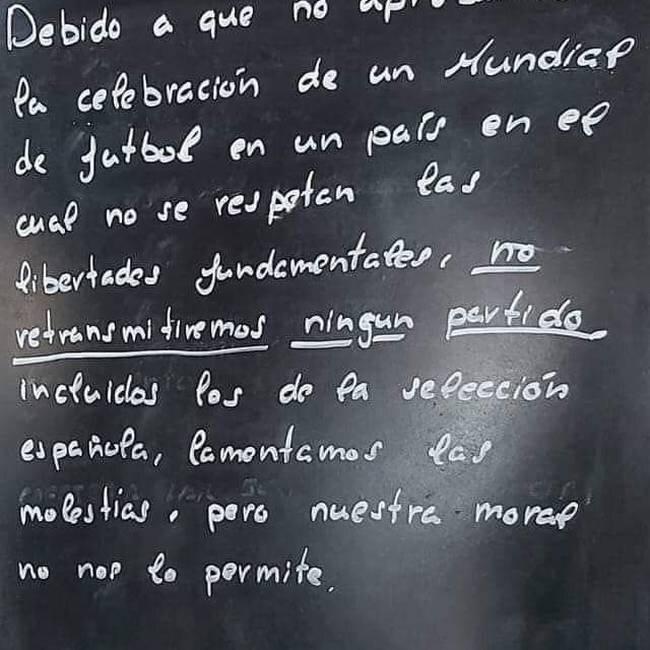 Debido a que no
la celebración de un Mundial
de futbol en un país en el
cual no se respetan las
libertades fundamentales, no
retransmitiremos ningun partido
incluidos los de la selección
española, lamentamos las
molestias, pero nuestra moral
no nos lo permite.